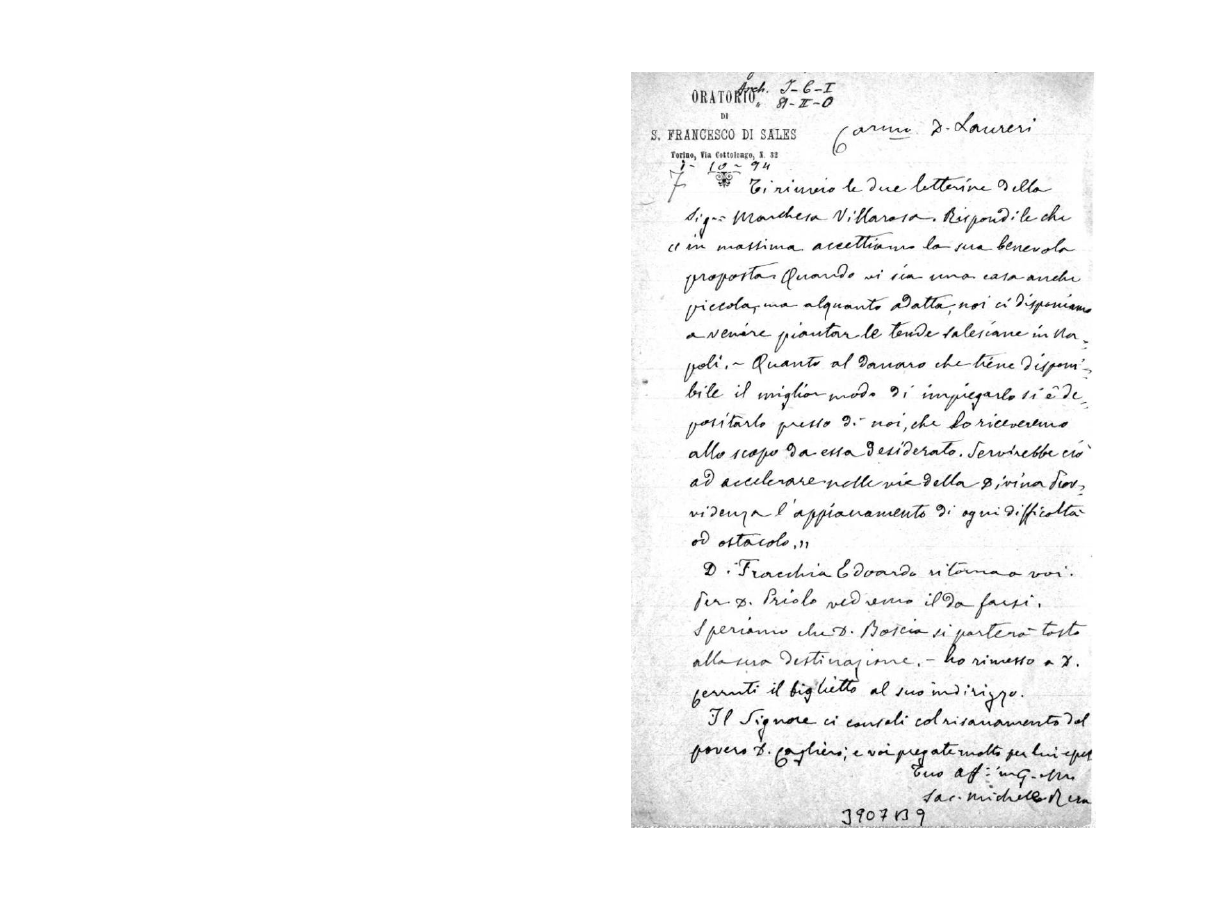 Arch. I-6-I
ORATORIO 81-II-0
DI
S. FRANCESCO DI SALES
Carmo D. Laureri
Torino, Via Cottolengo, N. 32
7-10-94
Ti rinvio le due letterine della
Sig.ra Marchesa Villarosa. Rispondile che
"in massima accettiamo la sua benevola
proposta. Quando vi sia una casa anche
piccola, ma alquanto adatta, noi ci disponiamo
a venire piantar le tende salesiane in Na-
poli. - Quanto al danaro che tiene disponi-
bile il miglior modo di impiegarlo si è de-
positarlo presso di noi, che lo riceveremo
allo scopo da essa desiderato. Servirebbe ciò
ad accelerare nelle vie della Divina Prov-
videnza l'appianamento di ogni difficoltà
od ostacolo."
D. Fracchia Edoardo ritorna a voi.
Per D. Priolo vedremo il da farsi.
Speriamo che D. Boscia si porterà tosto
alla sua destinazione. - ho rimesso a D.
Cerruti il biglietto al suo indirizzo.
Il Signore ci consoli col risanamento del
povero D. Cagliero; e voi pregate molto per lui e pel
Tuo aff. in G. e M.
Sac. Michele Rua
3907 B 9